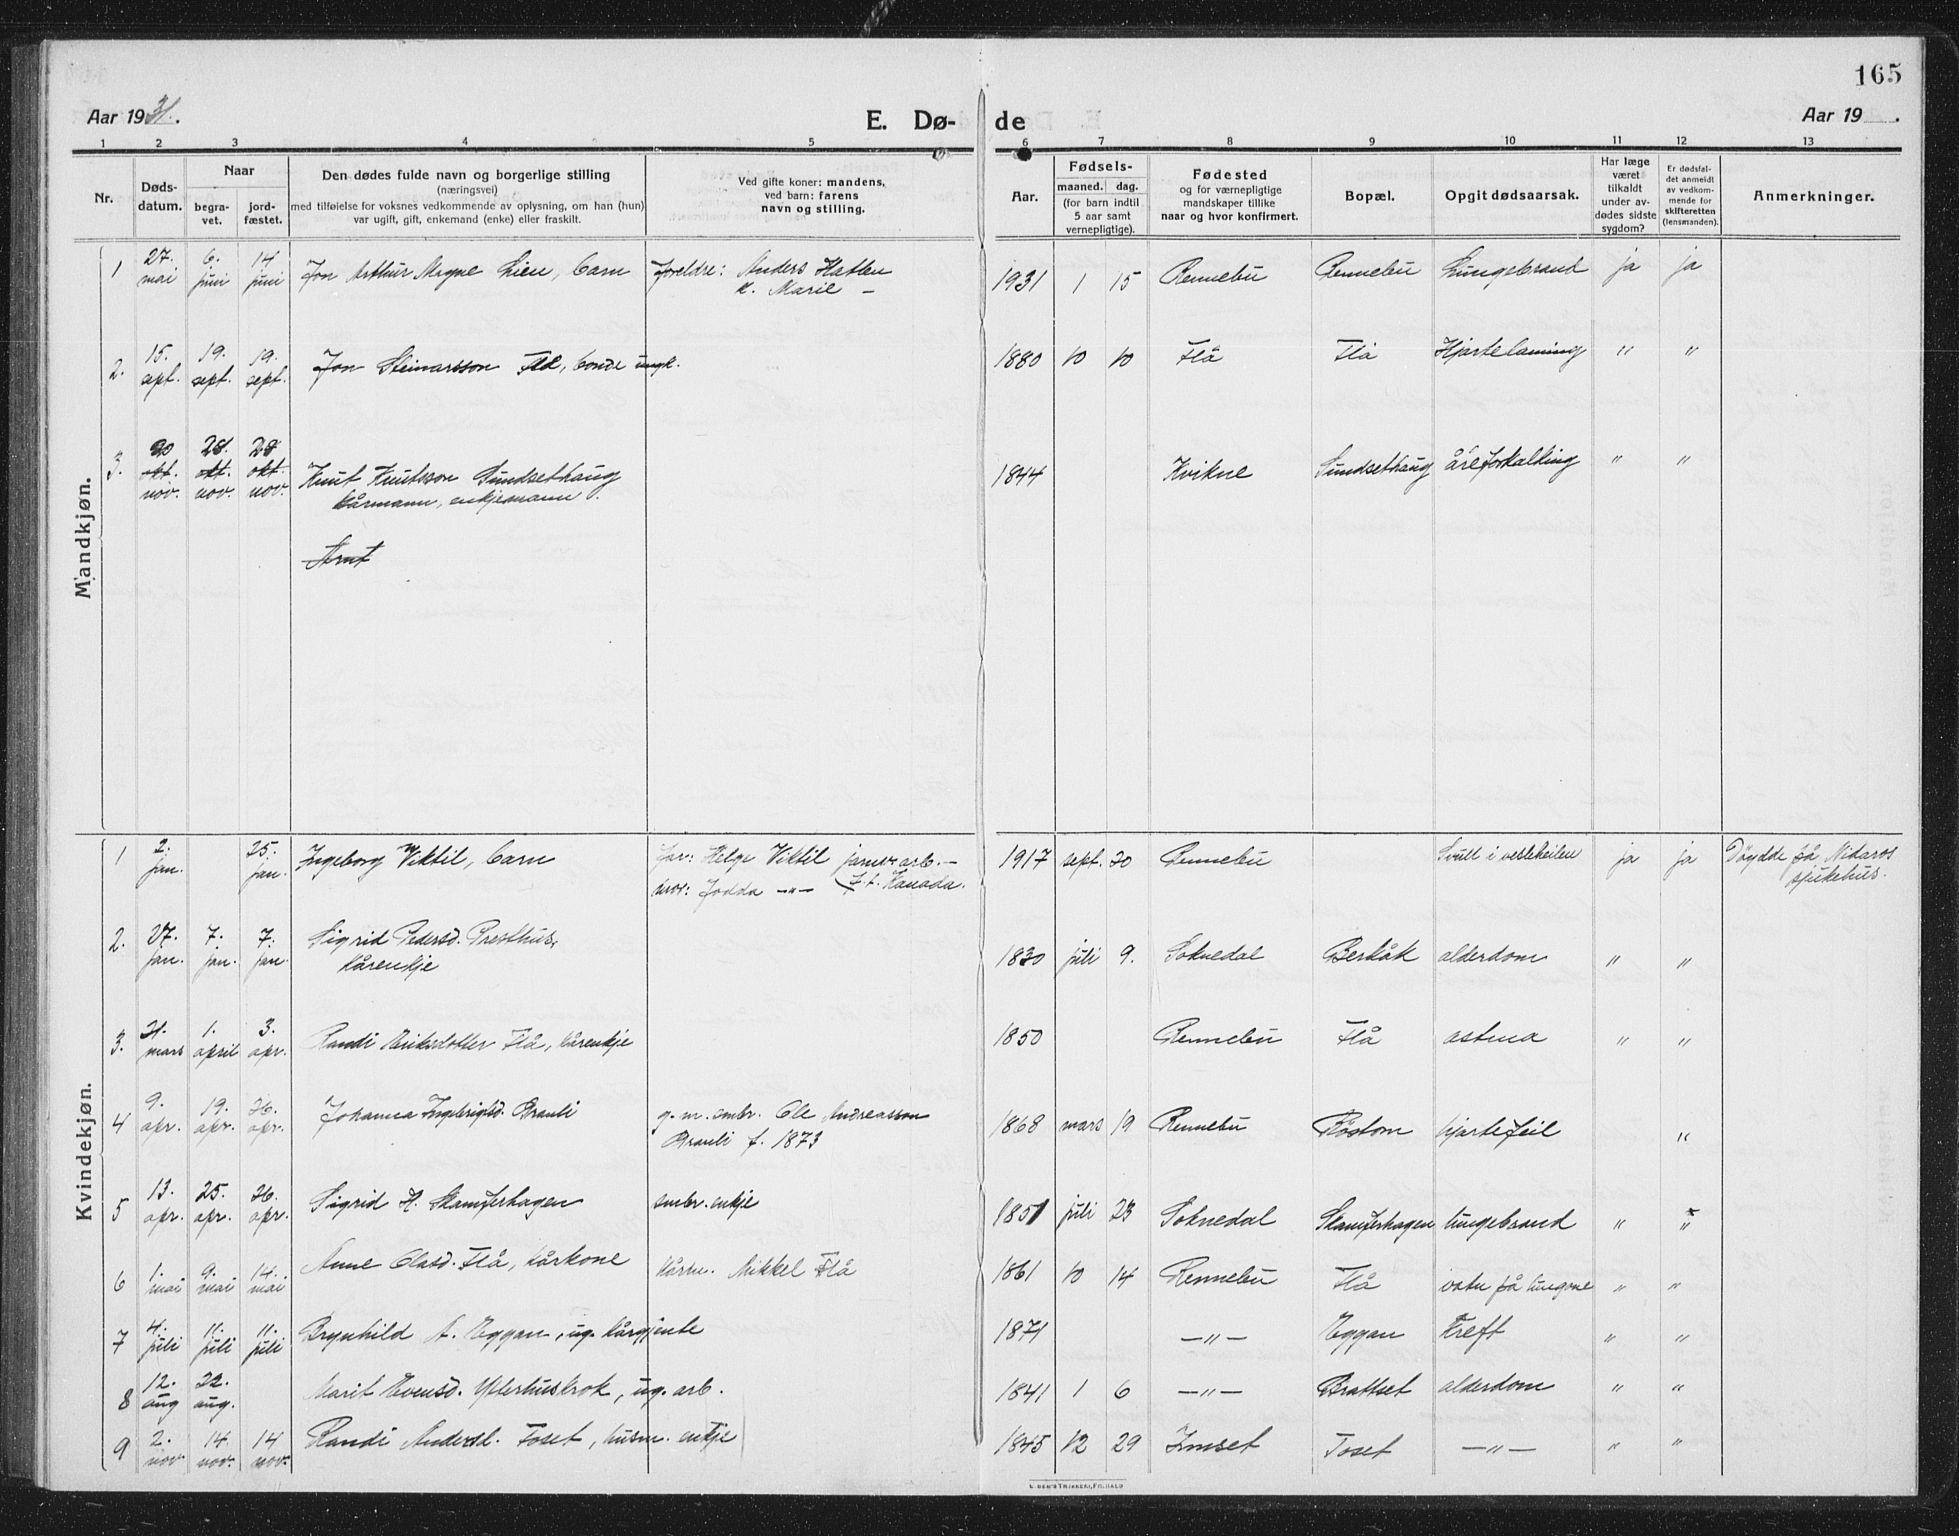 165
Aar 1931.
E. Dø-
de
Aar 19 .
1 2 3 4 5 6 7 8 9 10 11 12 13
Nr.
Døds-
datum.
Naar
begra-
vet.
jord-
fæstet.
Den dødes fulde navn og borgerlige stilling
(næringsvei)
med tilføielse for voksnes vedkommende av oplysning, om han (hun)
var ugift, gift, enkemand (enke) eller fraskilt.
Ved gifte koner: mandens,
ved barn: farens
navn og stilling.
Aar.
Fødsels-
maaned. dag.
(for barn indtil
5 aar samt
vernepligtige).
Fødested
og for værnepligtige
mandskaper tillike
naar og hvor konfirmert.
Bopæl.
Opgit dødsaarsak.
Har læge
været
tilkaldt
under av-
dødes sidste
sygdom?
Er dødsfal-
det anmeldt
av vedkom-
mende for
skifteretten
(lensmanden).
Anmerkninger.
Mandkjøn.
1 27. mai 6. juni 14 juni Jon Arthur Magne Lien, barn Foreldre: Anders Hatlen
k. Marie —
1931 1 15 Rennebu Rennebu Lungebrand ja ja
2. 15. sept. 19. sept. 19. sept. Jon Steinarsson Flå, bonde ungk.
1880 10 10 Flå Flå Hjartelaming " "
3. 20 okt. nov. 28. okt. nov. 28 okt. nov. Knut Knutsson Sundsethaug
kårmann, enkjemann.
1844 Kvikne Sundsethaug åreforkalking " "
Arnt
Kvindekjøn.
1 2. jan. 25. jan. Ingeborg Viktil, barn far: Helge Viktil
mor: Jodda —"— f.t. Kanada.
1917 sept. 20 Rennebu Svull i vesleheilen ja ja Døydde på Nidaros
sjukehus.
2. 27. jan. 7. jan. 7. jan. Sigrid Pedersd. Presthus,
kårenkje
1830 juli 9. Soknedal Berkåk alderdom " "
3. 31. mars 1. april 3. apr. Randi Eriksdotter Flå, kårenkje
1850 Rennebu Flå astma " "
4 9. apr. 19. apr. 26. apr. Johanna Ingebrigtsd. Granli g. m. smbr. Ole Andreasson
Granli f. 1873
1868 mars 19 Rennebu Røstom hjartefeil "
5 13. apr. 25. apr. 26. apr. Sigrid H. Skamferhagen smbr. enkje
1851 juli 23 Soknedal Skamferhagen lungebrand " "
6 1. mai 9. mai 14. mai Anne Olasd. Flå, kårkone kårm. Mikkel Flå
1861 10 14 Rennebu Flå vatn på lungone " "
7 4. juli 11. juli 11. juli Brynhild A. Eggan, ug. kårgjente
1871 —"— Eggan Kreft " "
8 12. aug 22. aug. Marit Evensd. Ytterhuskrok, ug. arb.
1841 1 6 —"— Brattset alderdom " "
9 2. nov. 14 nov. 14 nov. Randi Andersd. Foset, husm. enkje
1845 12 29 Innset Foset —"— " "